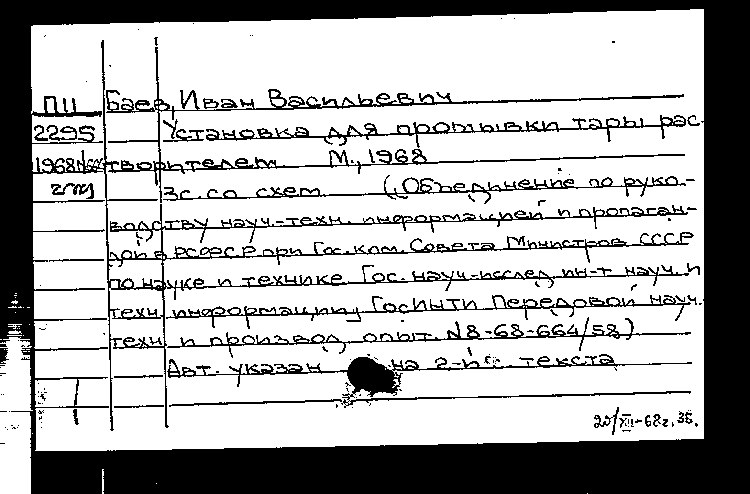 П11 Баев, Иван Васильевич
2295 Установка для промывки тары рас-
1968 творителем. М., 1968
3с. со схем. („Объединение по руко-
водству науч.-техн. информацией и пропаган-
дой в РСФСР при Гос. ком. Совета Министров СССР
по науке и технике Гос. науч-исслед. ин-т науч. и
техн. информации, ГосИНТИ Передовой науч.
техн. и производ. опыт. N8-68-664/58)
Авт. указан на 2-й с. текста
20/XII-68г. 35.